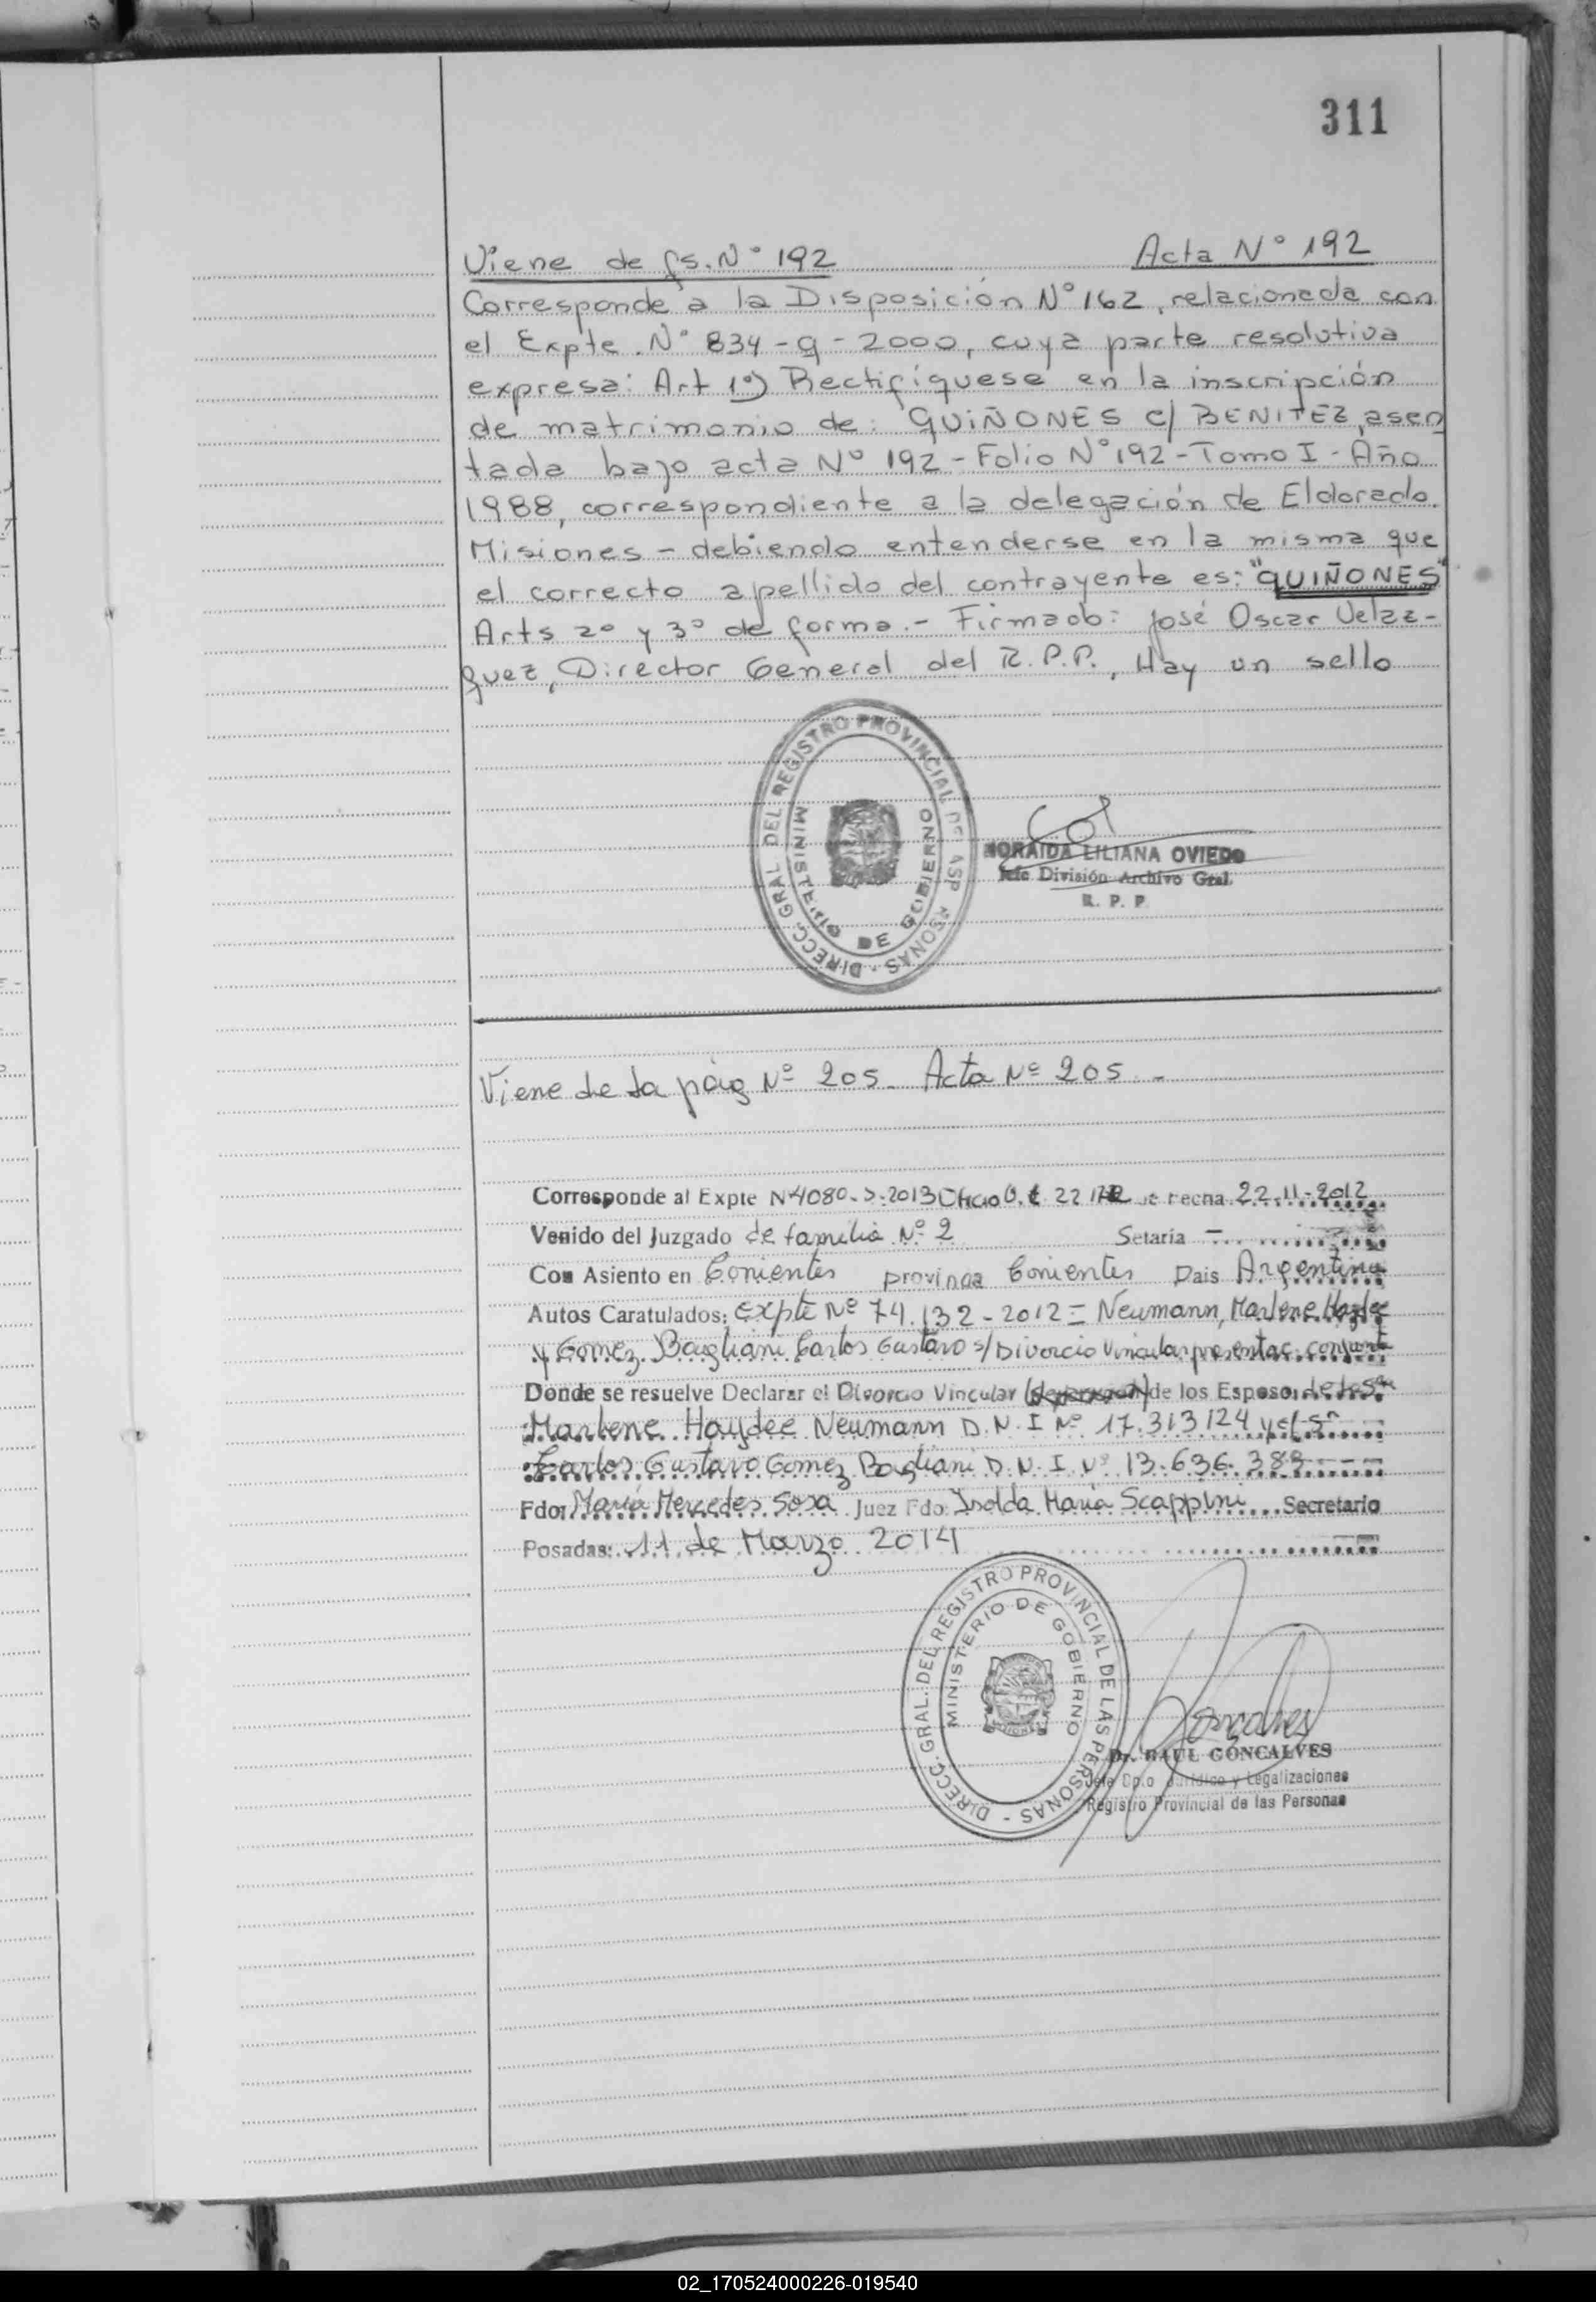 311
Viene de fs. N° 192 Acta N° 192
Corresponde a la Disposición N° 162, relacionada con
el Expte. N° 834-Q-2000, cuya parte resolutiva
expresa: Art 1°) Rectifíquese en la inscripción
de matrimonio de: QUIÑONES c/ BENITEZ, asen
tada bajo acta N° 192 - Folio N° 192 - Tomo I - Año
1988, correspondiente a la delegación de Eldorado.
Misiones - debiendo entenderse en la misma que
el correcto apellido del contrayente es: "QUIÑONES"
Arts 2° y 3° de forma.- Firmado: José Oscar Velaz-
quez, Director General del R.P.P., Hay un sello
DIRECC. GRAL DEL REGISTRO PROVINCIAL DE PERSONAS -
MINISTERIO DE GOBIERNO
LILIANA OVIEDO
Jefe División Archivo Gral.
R. P. P.
Viene de la pág Nº 205. Acta Nº 205 -
Corresponde al Expte N 4080-S-2013 Oficio 22 de fecha 22-11-2012
Venido del Juzgado de familia Nº 2 Setaría -
Con Asiento en Corrientes provincia Corrientes Pais Argentina
Autos Caratulados: Expte Nº 74.132-2012 = Neumann, Marlene Haydee
y Gomez Bagliani Carlos Gustavo s/ Divorcio Vincular presentac. conjunt
Donde se resuelve Declarar el Divorcio Vincular de los Esposos: de la Sra
Marlene Haydee Neumann D.N.I Nº 17.313124 y el Sr
Carlos Gustavo Gomez Bagliani D.N.I. Nº 13.636.383
Fdo: María Mercedes Sosa Juez Fdo: Isolda María Scappini Secretario
Posadas: 11 de Marzo 2014
DIRECC. GRAL. DEL REGISTRO PROVINCIAL DE LAS PERSONAS -
MINISTERIO DE GOBIERNO
Dr. RAUL GONCALVES
Jefe Dpto Jurídico y Legalizaciones
Registro Provincial de las Personas
02_170524000226-019540